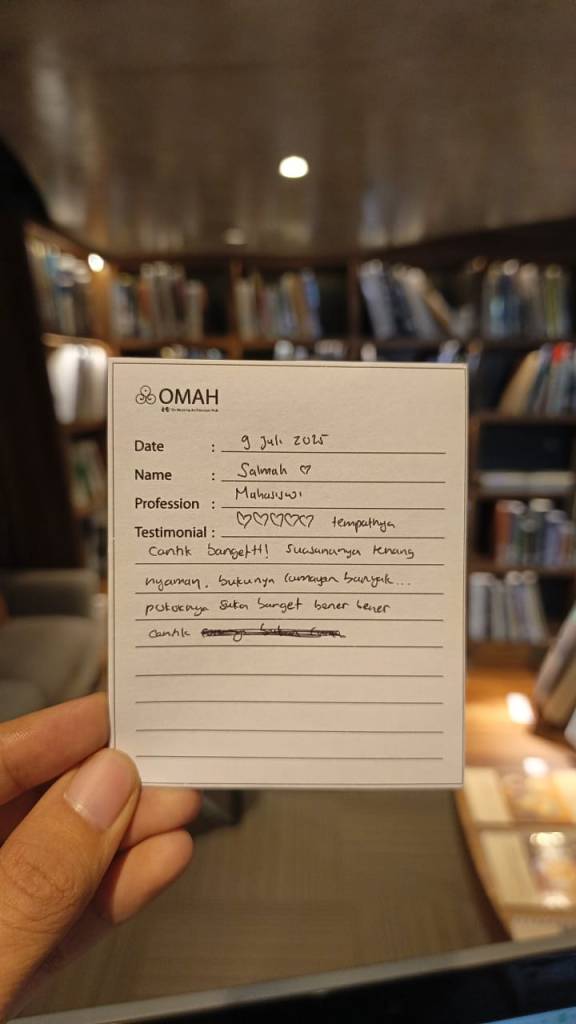 OMAH
Date : 9 Juli 2025
Name : Salmah ♡
Profession : Mahasiswi
Testimonial : ♡♡♡♡♡ tempatnya
cantik bangettt! suasananya tenang
nyaman. bukunya lumayan banyak...
pokoknya suka banget bener bener
cantik